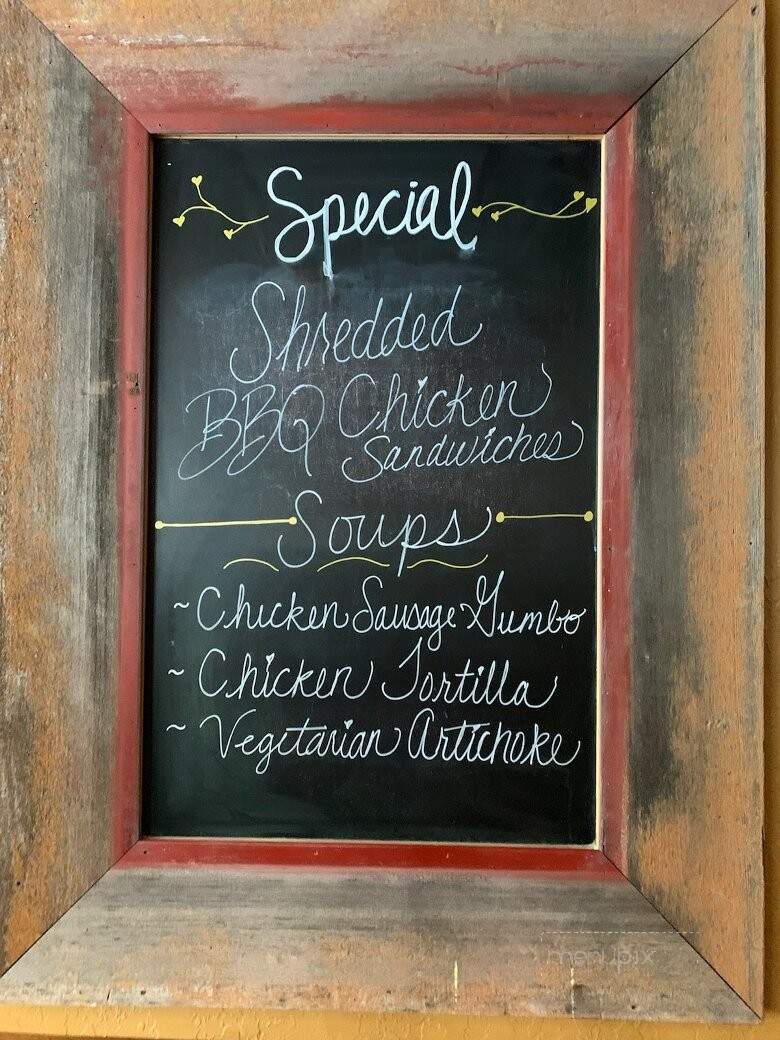 Special
Shredded
BBQ Chicken
Sandwiches
Soups
~ Chicken Sausage Gumbo
~ Chicken Tortilla
~ Vegetarian Artichoke
menupix